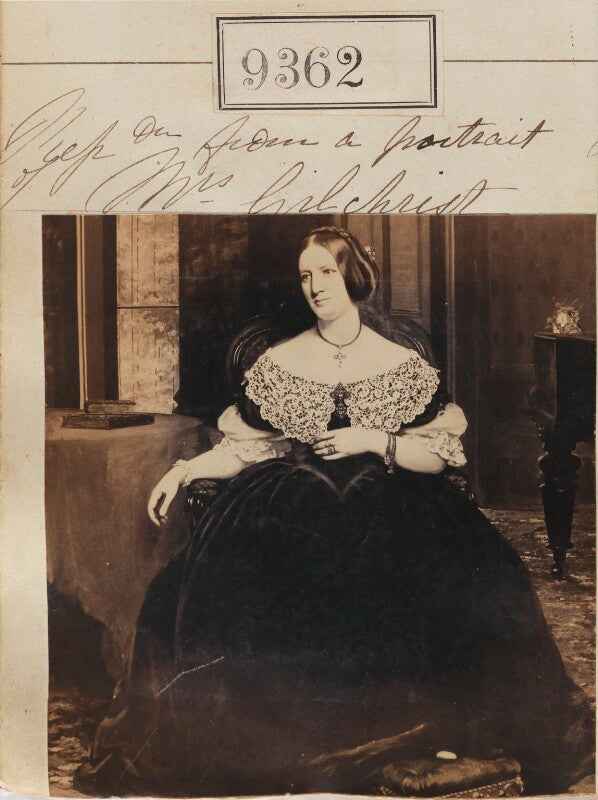 9362
from a portrait
of Mrs Gilchrist